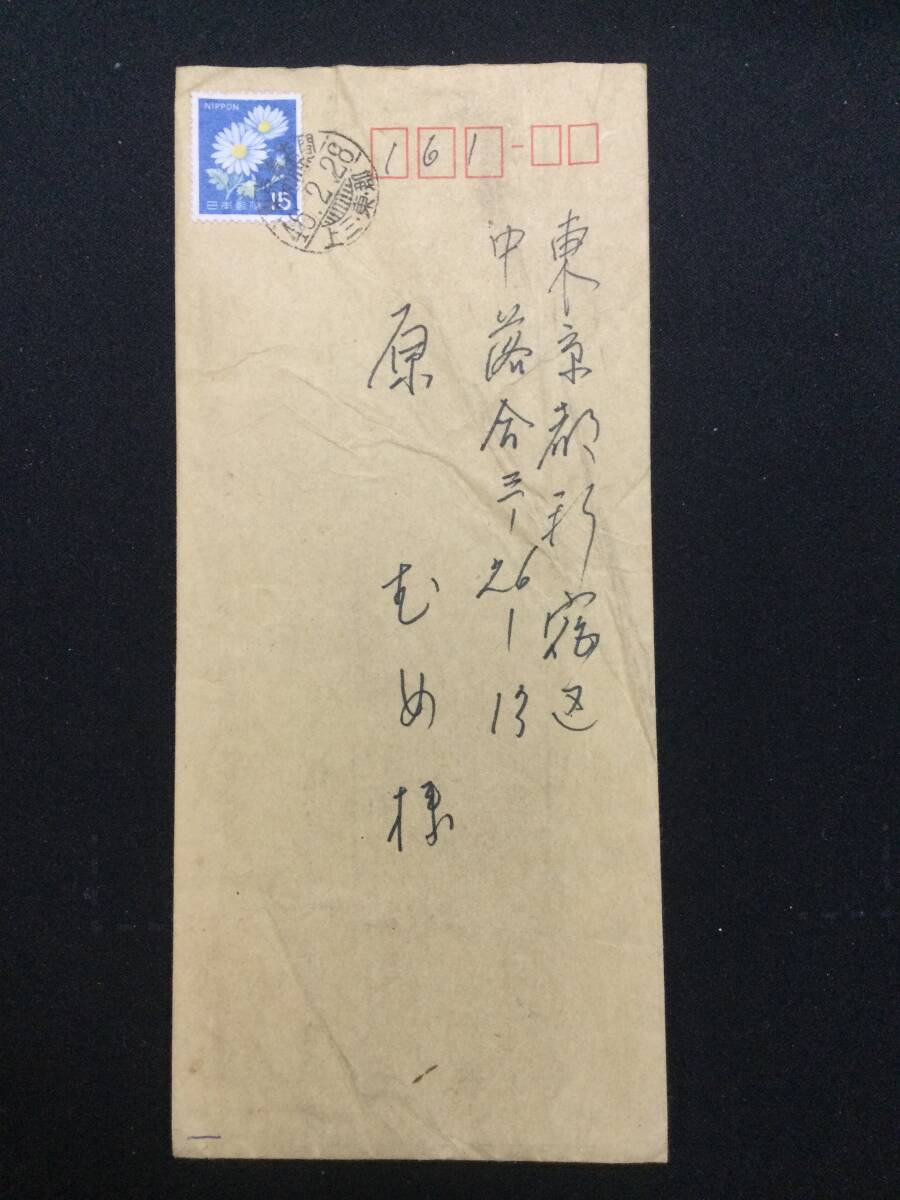 NIPPON
日本郵便 15
46.2.28
161
東京都新宿区
中落合三-26-13
原 むめ様